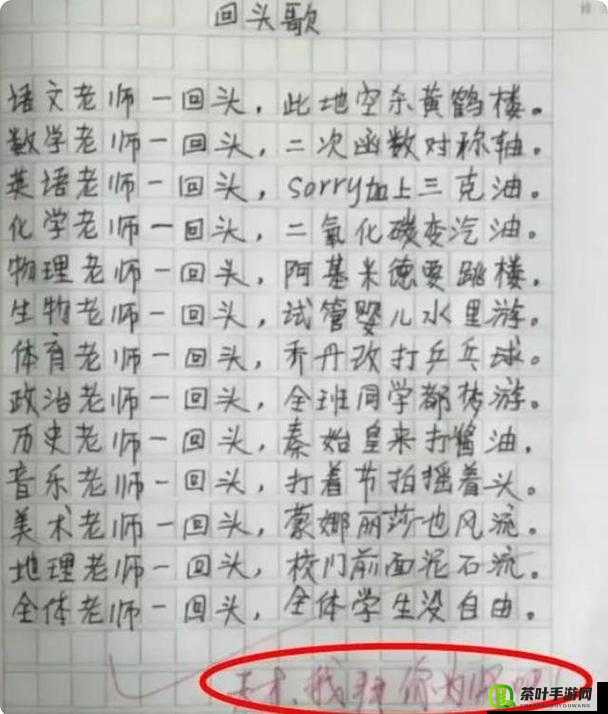 回头歌
语文老师一回头，此地空余黄鹤楼。
数学老师一回头，二次函数对称轴。
英语老师一回头，sorry加上三克油。
化学老师一回头，二氧化碳变汽油。
物理老师一回头，阿基米德要跳楼。
生物老师一回头，试管婴儿水里游。
体育老师一回头，乔丹改打乒乓球。
政治老师一回头，全班同学都梦游。
历史老师一回头，秦始皇来打酱油。
音乐老师一回头，打着节拍摇着头。
美术老师一回头，蒙娜丽莎也风流。
地理老师一回头，校门前面泥石流。
全体老师一回头，全体学生没自由。
我拜你为师吧！
茶叶手游网